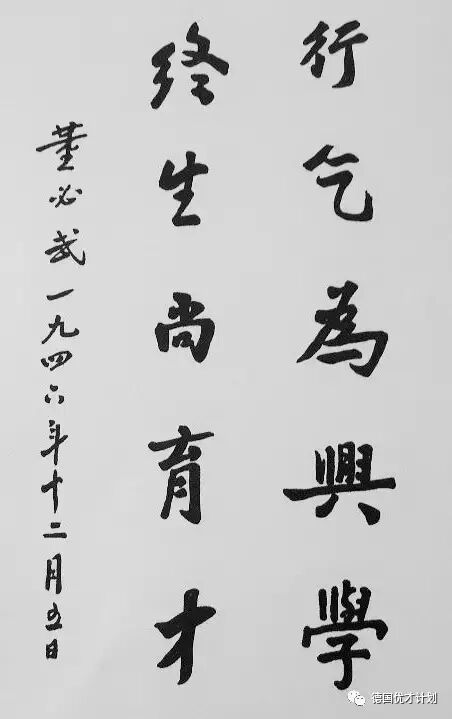 行乞為興學
終生尚育才
董必武一九四六年十二月五日
德国优才计划